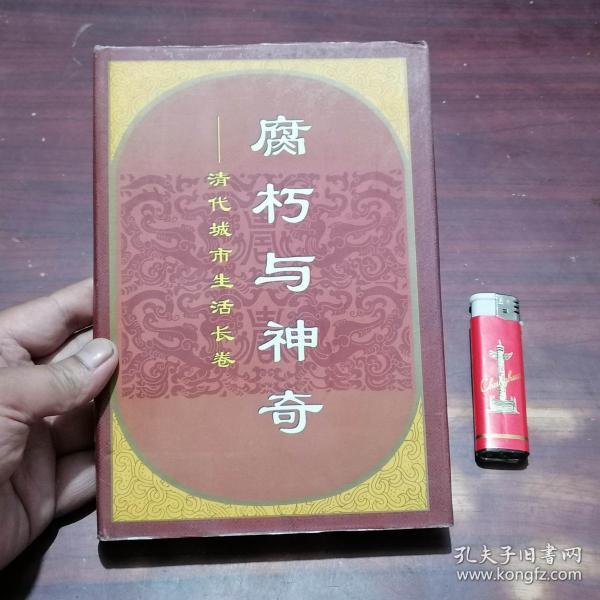 腐朽与神奇
——清代城市生活长卷
Chunghwa
孔夫子旧書网
www.kongfz.com